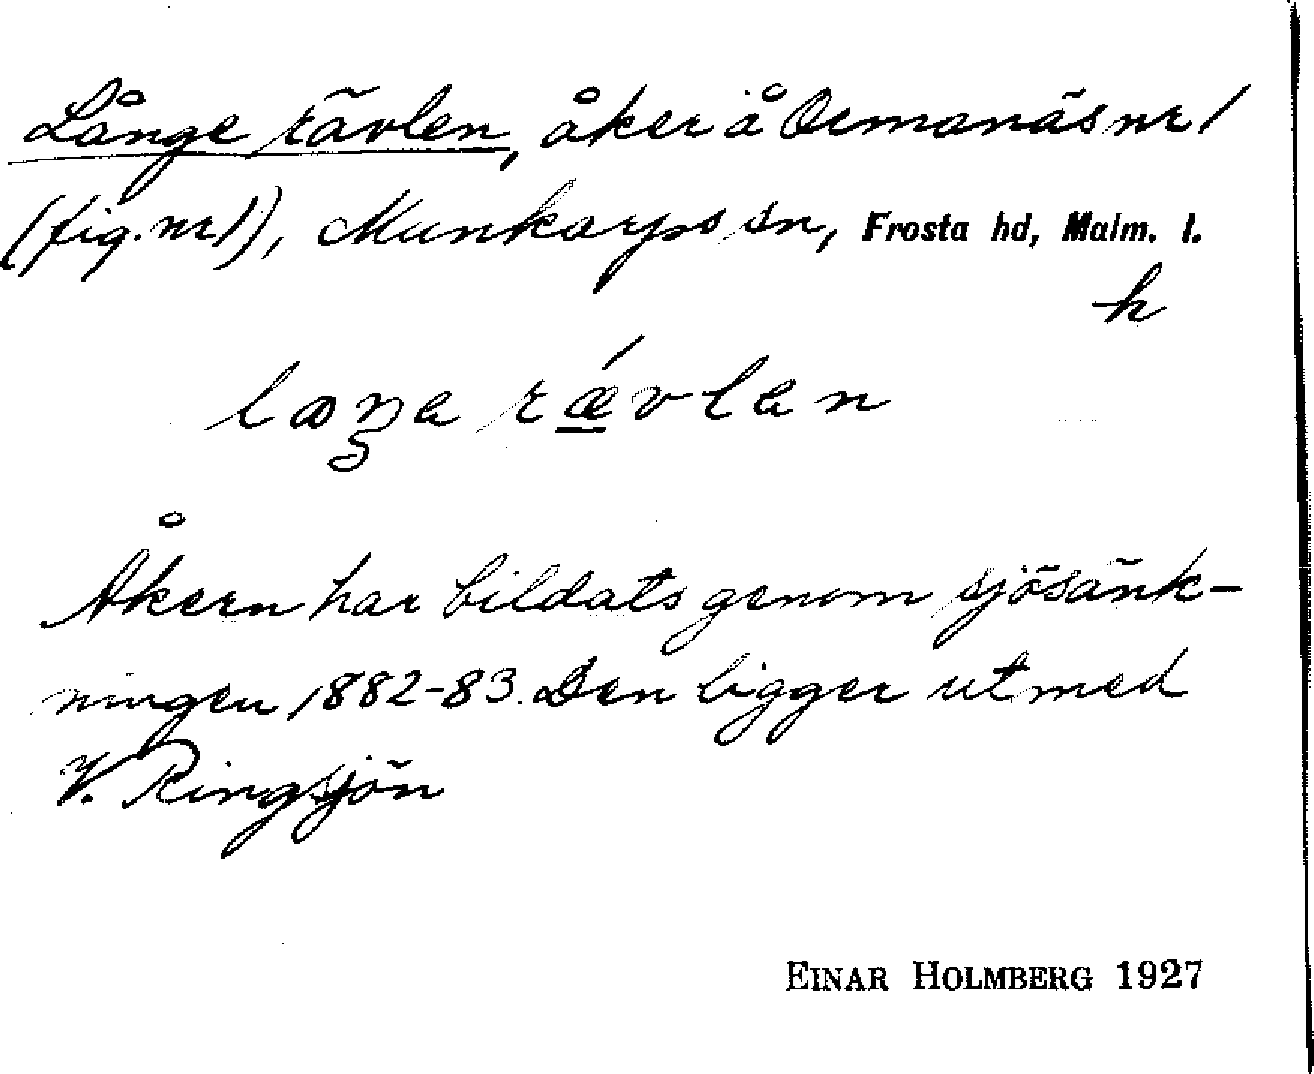 Långe rävlen, åker å Ormanäs nr 1
(fig. nr 1), Munkarps sn, Frosta hd, Malm. l.
h
laŋa rǽvlan
Åkern har bildats genom sjösänk-
ningen 1882-83. Den ligger utmed
V. Ringsjön
EINAR HOLMBERG 1927